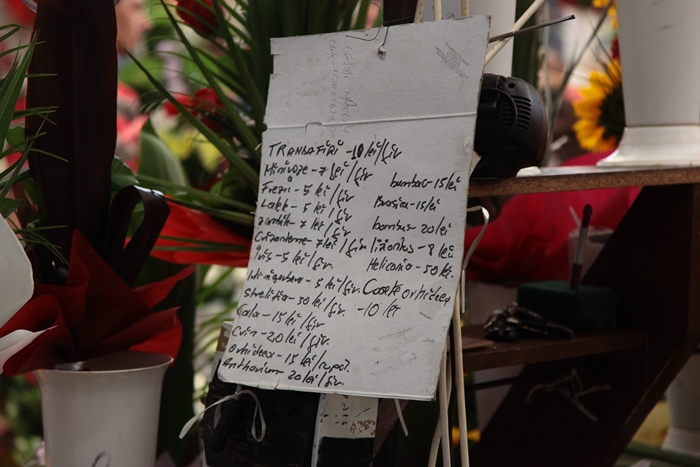 TRANDAFIRI - 10 lei/fir
Miniroze - 7 lei/fir
Frezii - 5 lei/fir
Lalele - 5 lei/fir
Zambile - 7 lei/fir
Crizanteme 7 lei/fir
Iris - 5 lei/fir
- 5 lei/fir
Strelitia - 30 lei/fir
Cala - 15 lei/fir
Crin - 20 lei/fir
Orhideea - 15 lei/
Anthurium 20 lei/fir
bambus - 15 lei
- 15 lei
bambus 20 lei
- 8 lei
Heliconia - 50 lei
Casete orhidee
- 10 lei